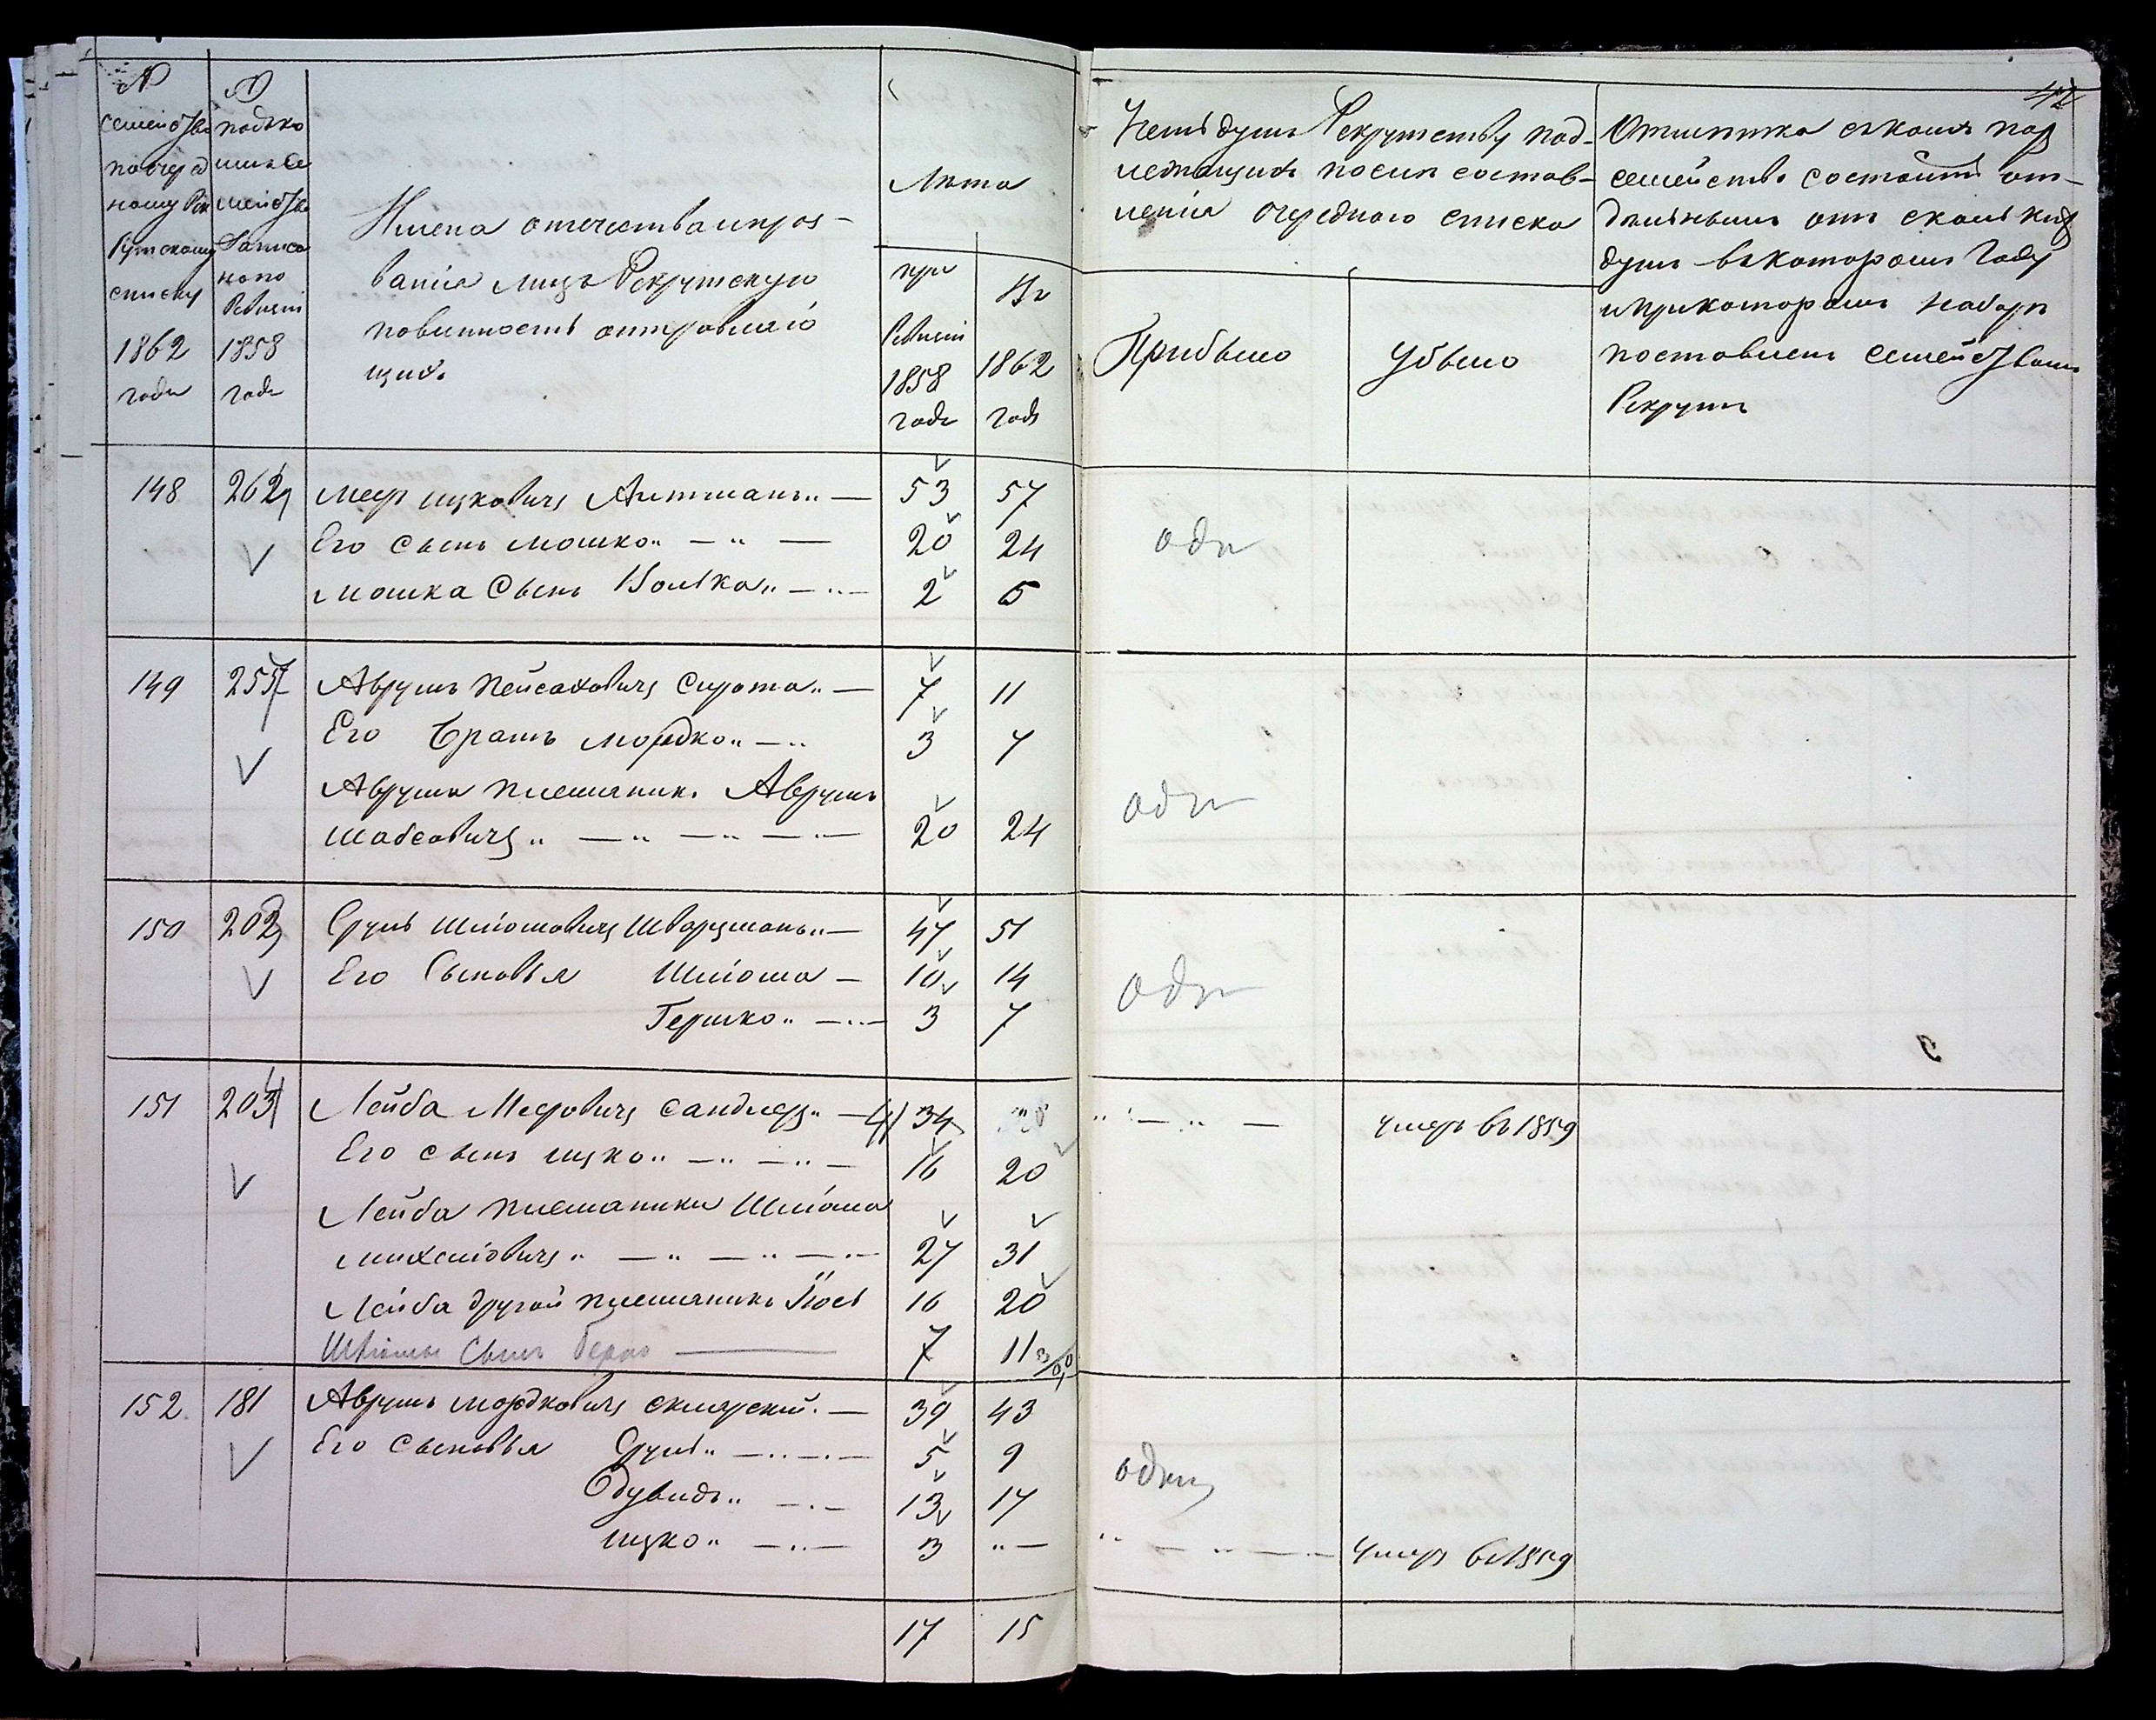 № семейства по очередному Рекрутскому списку 1862 года
№ под коимъ семейство записано по Ревизіи 1858 года
Имена отечества и прозванія лицъ Рекрутскую повинность отправляющихъ
Лѣта
при Ревизіи 1858 года
Въ 1862 годъ
душъ Рекрутству подлежащихъ после составленія очереднаго списка
Прибыло
Убыло
Отмѣтка съ коихъ пор семейство состоитъ отдѣльнымъ отъ сколькихъ душъ въ которомъ году и при которомъ наборѣ поставленъ семействомъ Рекрутъ
42
148 262 Меер Ицковичъ Литманъ 53 57
Его сынъ Мошко 20 24 одн
Мошка Сынъ Волько 2 6
149 257 Аврумъ Пейсаховичъ Сирота 7 11
Его Братъ Мордко 3 7
Аврума племянник. Аврумъ
Шабсовичъ 20 24 одн
150 202 Сруль Шліомовичъ Шварцманъ 47 51
Его Сыновья Шліома 10 14 одн
Гершко 3 7
151 204 Лейба Меровичъ Сандлеръ 34 умеръ въ 1859
Его сынъ Ицко 16 20
Лейба племянники Шліома
Михеліовичъ 27 31
Лейба другой племянникъ Іось 16 20
Шліомы Сынъ Берко 7 11
152 181 Аврумъ Мордковичъ Склярский 39 43
Его Сыновья Сруль 5 9
Дувидъ 13 17 один
Ицко 3 умеръ въ 1859
17 15